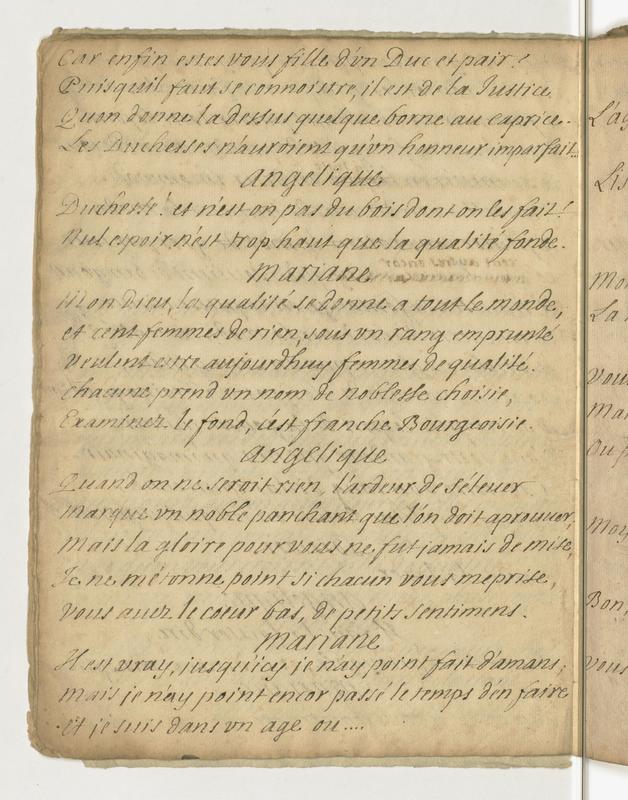 Car enfin estes vous fille d'vn Duc et pair!
Puisquil faut se connoistre, il est de la Justice
Quon donne la dessus quelque borne au caprice.
Les Duchesses n'auroient qu'vn honneur imparfait..
angelique
Duchesse! et n'est on pas du bois dont on les fait!
Nul espoir n'est trop haut que la qualité fonde.
Mariane
Mon dieu, la qualité se donne a tout le monde,
et cent femmes de rien, sous vn rang emprunté
veulent estre aujourdhuy femmes de qualité.
chacune prend vn nom de noblesse choisie,
Examinez le fond, c'est franche Bourgeoisie.
angelique
Quand on ne seroit rien, l'ardeur de s'éleuer
marque vn noble panchant que l'on doit aprouuer,
mais la gloire pour vous ne fut jamais de mise,
Je ne m'étonne point si chacun vous meprise,
vous auez le coeur bas, de petits sentimens.
Mariane
Il est vray, jusqu'icy je n'ay point fait d'amans,
mais je n'ay point encor passé le temps d'en faire
Et je suis dans vn age ou....
Lis
vous
Bon,
vous